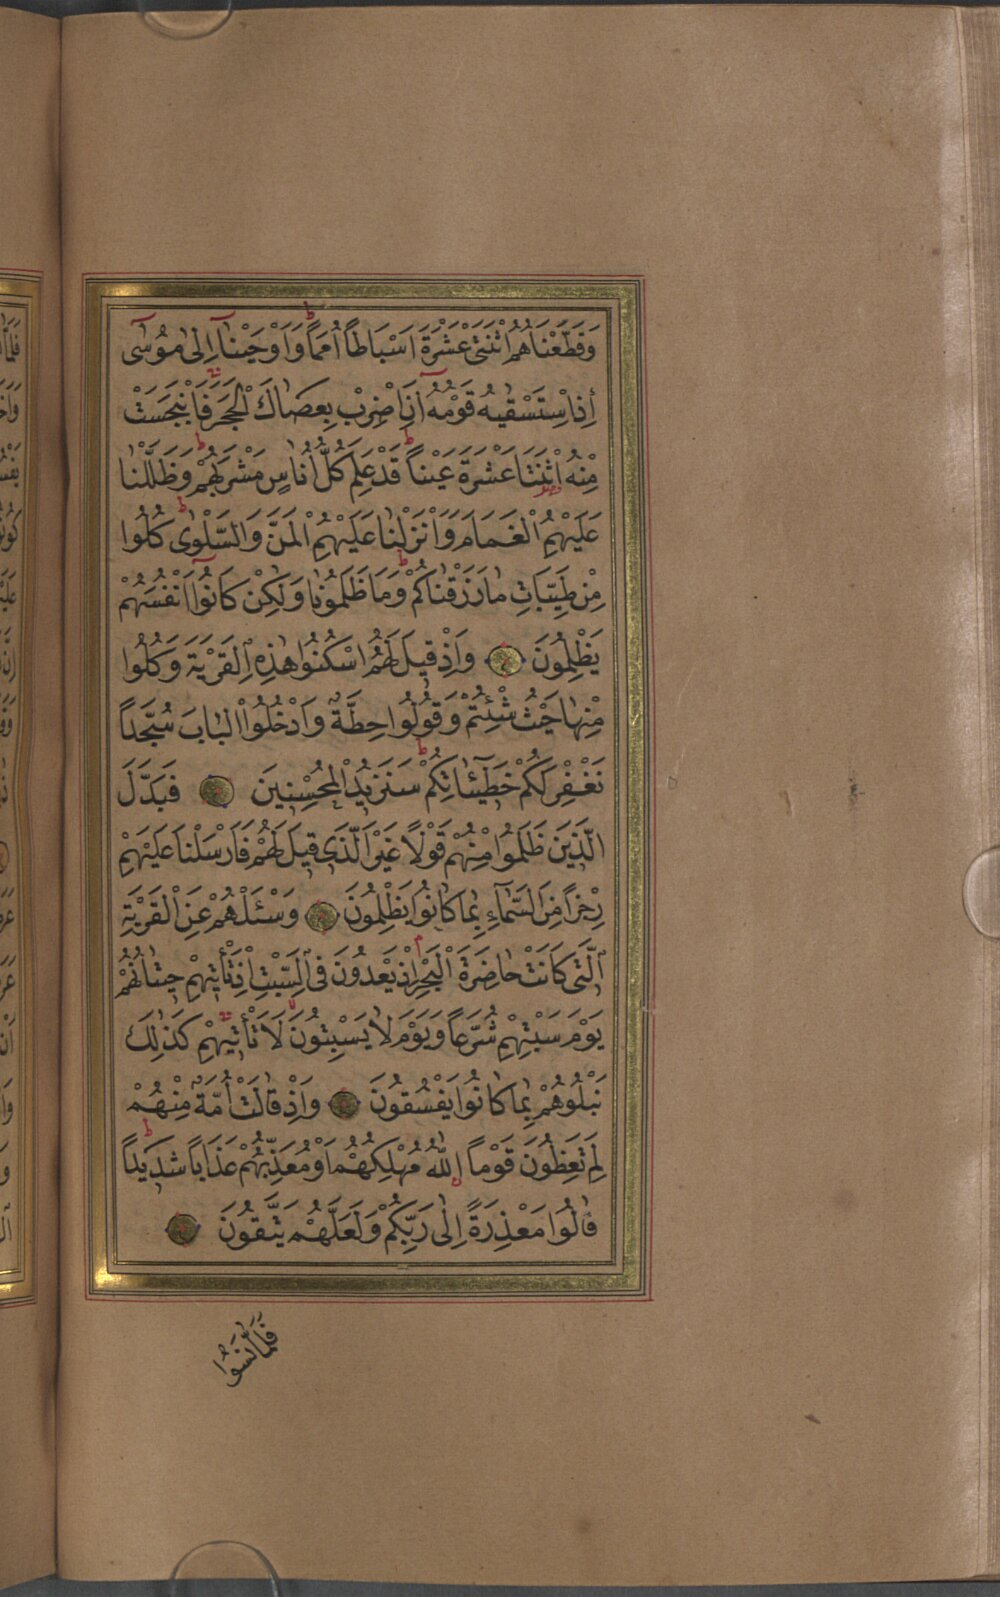 وَقَطَّعْنَاهُمُ اثْنَتَىْ عَشْرَةَ اَسْبَاطًا اُمَمًا وَاَوْحَيْنَآ اِلٰى مُوسٰٓى
اِذِ اسْتَسْقٰيهُ قَوْمُهُٓ اَنِ اضْرِبْ بِعَصَاكَ الْحَجَرَ فَانْبَجَسَتْ
مِنْهُ اثْنَتَا عَشْرَةَ عَيْنًا قَدْ عَلِمَ كُلُّ اُنَاسٍ مَشْرَبَهُمْ وَظَلَّلْنَا
عَلَيْهِمُ الْغَمَامَ وَاَنْزَلْنَا عَلَيْهِمُ الْمَنَّ وَالسَّلْوٰى كُلُوا
مِنْ طَيِّبَاتِ مَا رَزَقْنَاكُمْ وَمَا ظَلَمُونَا وَلٰكِنْ كَانُوٓا اَنْفُسَهُمْ
يَظْلِمُونَ وَاِذْ قِيلَ لَهُمُ اسْكُنُوا هٰذِهِ الْقَرْيَةَ وَكُلُوا
مِنْهَا حَيْثُ شِئْتُمْ وَقُولُوا حِطَّةٌ وَادْخُلُوا الْبَابَ سُجَّدًا
نَغْفِرْ لَكُمْ خَطِيٓئَاتِكُمْ سَنَزِيدُ الْمُحْسِنِينَ فَبَدَّلَ
الَّذِينَ ظَلَمُوا مِنْهُمْ قَوْلًا غَيْرَ الَّذِى قِيلَ لَهُمْ فَاَرْسَلْنَا عَلَيْهِمْ
رِجْزًا مِنَ السَّمَآءِ بِمَا كَانُوا يَظْلِمُونَ وَسْئَلْهُمْ عَنِ الْقَرْيَةِ
الَّتِى كَانَتْ حَاضِرَةَ الْبَحْرِ اِذْ يَعْدُونَ فِى السَّبْتِ اِذْ تَأْتِيهِمْ حِيتَانُهُمْ
يَوْمَ سَبْتِهِمْ شُرَّعًا وَيَوْمَ لَا يَسْبِتُونَ لَا تَأْتِيهِمْ كَذٰلِكَ
نَبْلُوهُمْ بِمَا كَانُوا يَفْسُقُونَ وَاِذْ قَالَتْ اُمَّةٌ مِنْهُمْ
لِمَ تَعِظُونَ قَوْمًا اللّٰهُ مُهْلِكُهُمْ اَوْ مُعَذِّبُهُمْ عَذَابًا شَدِيدًا
قَالُوا مَعْذِرَةً اِلٰى رَبِّكُمْ وَلَعَلَّهُمْ يَتَّقُونَ
فَلَمَّا نَسُوا